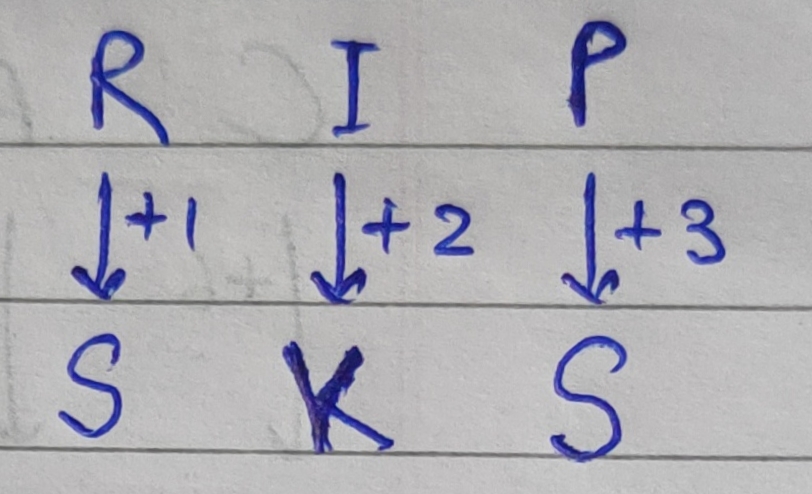 R I P
↓+1 ↓+2 ↓+3
S K S